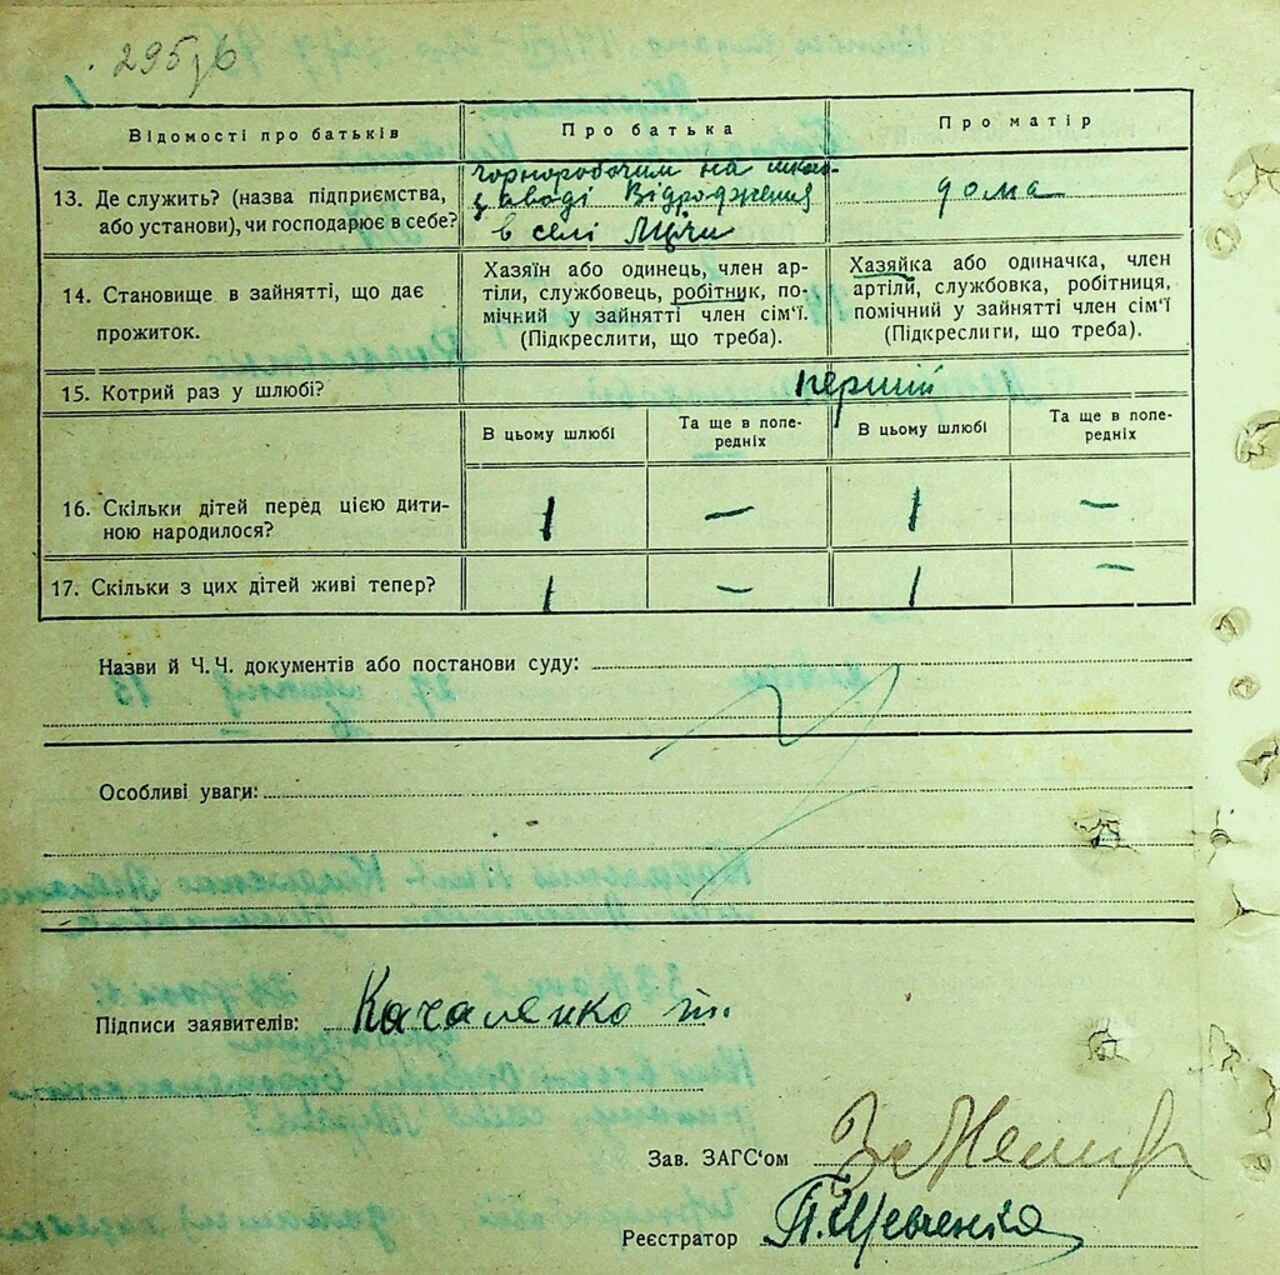 295
Відомості про батьків
Про батька
Про матір
13. Де служить? (назва підприємства, або установи), чи господарює в себе?
чорноробочим на
заводі Відродження
в селі
дома
14. Становище в зайнятті, що дає прожиток.
Хазяїн або одинець, член ар-
тіли, службовець, робітник, по-
мічний у зайнятті член сім'ї.
(Підкреслити, що треба).
Хазяйка або одиначка, член
артіли, службовка, робітниця,
помічний у зайнятті член сім'ї
(Підкреслити, що треба).
15. Котрий раз у шлюбі?
першій
В цьому шлюбі
Та ще в попе-
редніх
В цьому шлюбі
Та ще в попе-
редніх
16. Скільки дітей перед цією дити-
ною народилося?
1 — 1 —
17. Скільки з цих дітей живі тепер?
1 — 1 —
Назви й Ч.Ч. документів або постанови суду:
Особливі уваги:
Підписи заявителів: Качаленко
Зав. ЗАГС'ом
Реєстратор П. Шевченко